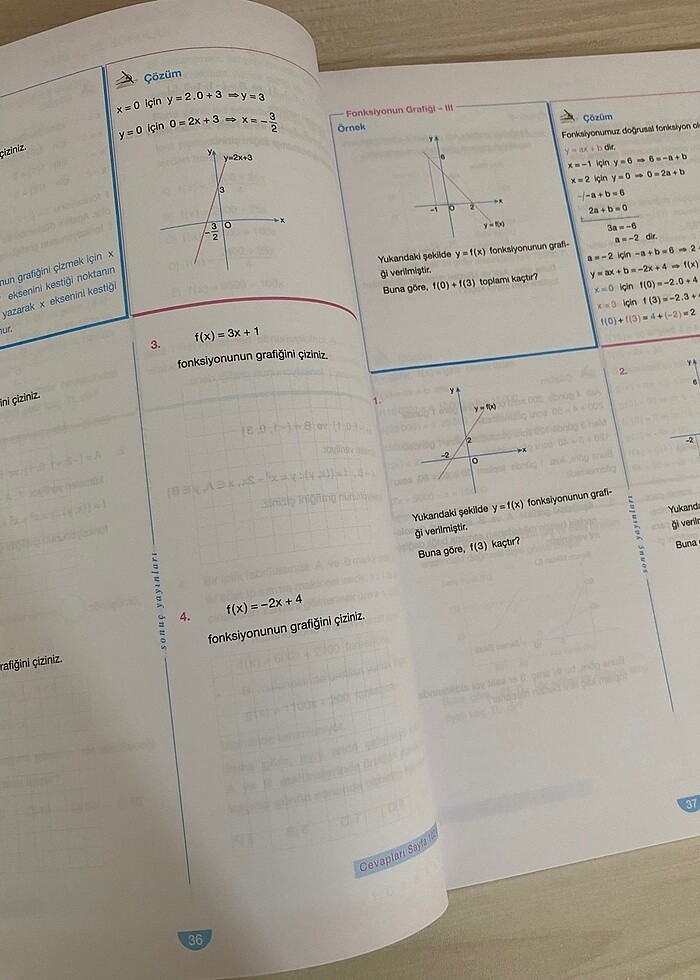 çiziniz.
nun grafiğini çizmek için x
eksenini kestiği noktanın
yazarak x eksenini kestiği
nur.
ini çiziniz.
rafiğini çiziniz.
Çözüm
x = 0 için y = 2.0 + 3 ⇒ y = 3
y = 0 için 0 = 2x + 3 ⇒ x = -3/2
y
y=2x+3
3
-3/2
O
x
3.
f(x) = 3x + 1
fonksiyonunun grafiğini çiziniz.
4.
f(x) = -2x + 4
fonksiyonunun grafiğini çiziniz.
sonuç yayınları
Cevapları Sayfa
36
Fonksiyonun Grafiği - III
Örnek
y
6
-1
O
2
x
y = f(x)
Yukarıdaki şekilde y = f(x) fonksiyonunun grafi-
ği verilmiştir.
Buna göre, f(0) + f(3) toplamı kaçtır?
Çözüm
Fonksiyonumuz doğrusal fonksiyon ol
y = ax + b dir.
x = -1 için y = 6 ⇒ 6 = -a + b
x = 2 için y = 0 ⇒ 0 = 2a + b
-/-a + b = 6
2a + b = 0
3a = -6
a = -2 dir.
a = -2 için -a + b = 6 ⇒ 2
y = ax + b = -2x + 4 ⇒ f(x)
x = 0 için f(0) = -2.0 + 4
x = 3 için f(3) = -2.3 +
f(0) + f(3) = 4 + (-2) = 2
1.
y
y = f(x)
2
-2
O
x
Yukarıdaki şekilde y = f(x) fonksiyonunun grafi-
ği verilmiştir.
Buna göre, f(3) kaçtır?
sonuç yayınları
2.
y
6
-2
Yukarıda
ği verilm
Buna
37